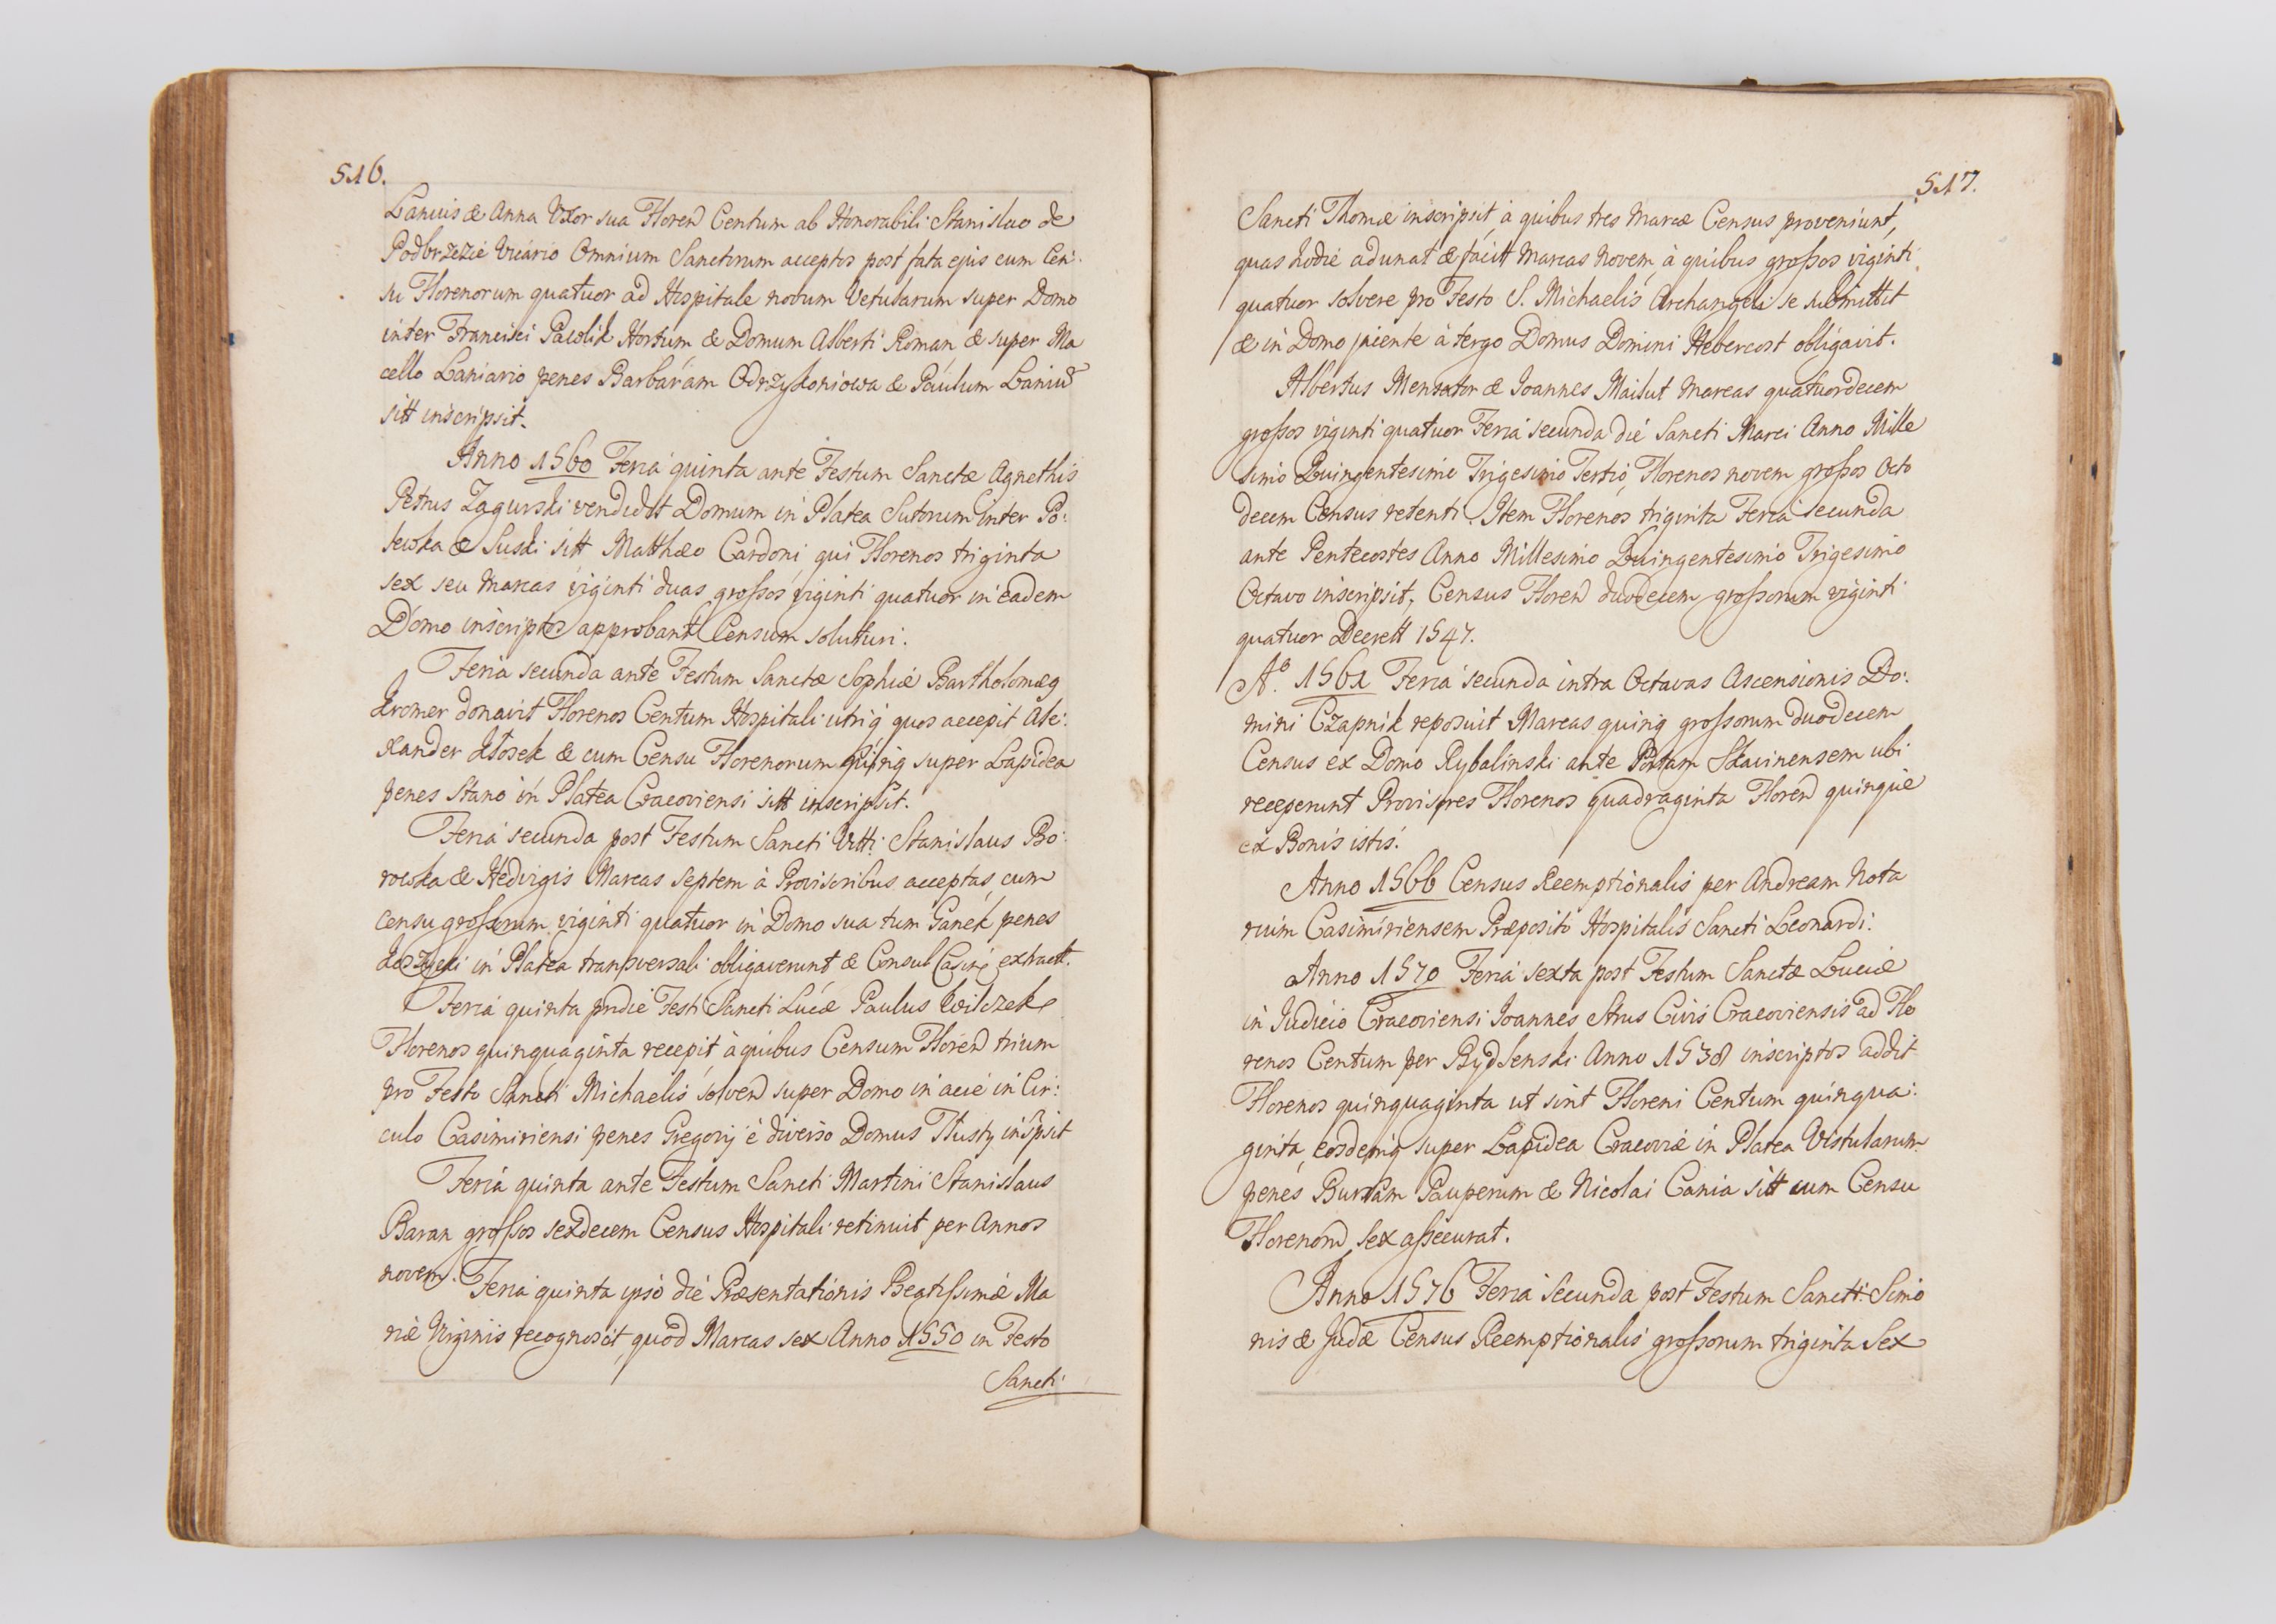 516.
Lanius & Anna Uxor sua Floren Centum ab Honorabili Stanislao de
Podbrzezie Vicario Omnium Sanctorum acceptos post fata ejus cum Cen:
su Florenorum quatuor ad Hospitale novum Vetularum super Domo
inter Francisci Pacolik Hortum & Domum Alberti Roman & super Ma
cello Laniario penes Barbaram Odrzykoniowa & Paulum Laniu
sitt inscripsit.
Anno 1560 Feria quinta ante Festum Sanctæ Agnethis
Petrus Zagurski vendidit Domum in Platea Sutorum inter Po:
sewka & Suski sitt Matthæo Cardoni, qui Florenos triginta
sex seu Marcas viginti duas grossos viginti quatuor in eadem
Domo inscriptos approbant Censum soluturi.
Feria secunda ante Festum Sanctæ Sophiæ Bartholomæg
Kromer donavit Florenos Centum Hospitali utriq quos accepit Ale:
xander Kłosek & cum Censu Florenorum quinq super Lapidea
penes Stano in Platea Cracoviensi sitt inscripsit.
Feria secunda post Festum Sancti Vitti Stanislaus Bo:
rowka & Hedvigis Marcas septem à Provisoribus acceptas, cum
censu grossorum viginti quatuor in Domo sua tum Ganek penes
in Platea transversali obligaverunt & Consul Casim extractt.
Feria quinta pridie Festi Sancti Lucæ Paulus Wilczek
Florenos quinquaginta recepit à quibus Censum Floren trium
pro Festo Sancti Michaelis solven super Domo in acie in Cir:
culo Casimiriensi penes Gregorij è diverso Domus Tłusty inspsit
Feria quinta ante Festum Sancti Martini Stanislaus
Baran grossos sexdecem Census Hospitali retinuit per Annos
novem. Feria quinta ipso die Præsentationis Beatissimæ Ma
riæ Virginis recognoscit, quod Marcas sex Anno 1550 in Festo
Sancti
517.
Sancti Thomæ inscripsit, à quibus tres Marcæ Census proveniunt,
quas hodie adunat & facitt Marcas novem, à quibus grossos viginti
quatuor solvere pro Festo S. Michaelis Archangeli se submittit
& in Domo jacente à tergo Domus Domini Hebercost obligavit.
Albertus Mensator & Joannes Maisut Marcas quatuordecem
grossos viginti quatuor Feria secunda die Sancti Marci Anno Mille
simo Quingentesimo Trigesimo Tertio, Florenos novem grossos Octo
decem Census retenti. Item Florenos triginta Feria secunda
ante Pentecostes Anno Millesimo Quingentesimo Trigesimo
Octavo inscripsit, Census Floren duodecem grossorum viginti
quatuor Decrett 1547.
Ao. 1561 Feria secunda intra Octavas Ascensionis Do:
mini Czapnik reposuit Marcas quinq grossorum duodecem
Census ex Domo Rybalinski ante Portam Skavinensem ubi
receperunt Provisores Florenos quadraginta Floren quinque
ex Bonis istis.
Anno 1566 Census Reemptionalis per Andream Nota
rium Casimiriensem Præposito Hospitalis Sancti Leonardi.
Anno 1570 Feria sexta post Festum Sanctæ Luciæ
in Judicio Cracoviensi Joannes Strus Civis Cracoviensis ad Flo
renos Centum per Bydlenski Anno 1538 inscriptos addit
Florenos quinquaginta ut sint Floreni Centum quinqua:
ginta, eosdemq super Lapidea Cracoviæ in Platea Vistularum
penes Bursam Pauperum & Nicolai Cania sitt cum Censu
Florenorum sex assecurat.
Anno 1576 Feria secunda post Festum Sanctt Simo
nis & Judæ Census Reemptionalis grossorum triginta Sex